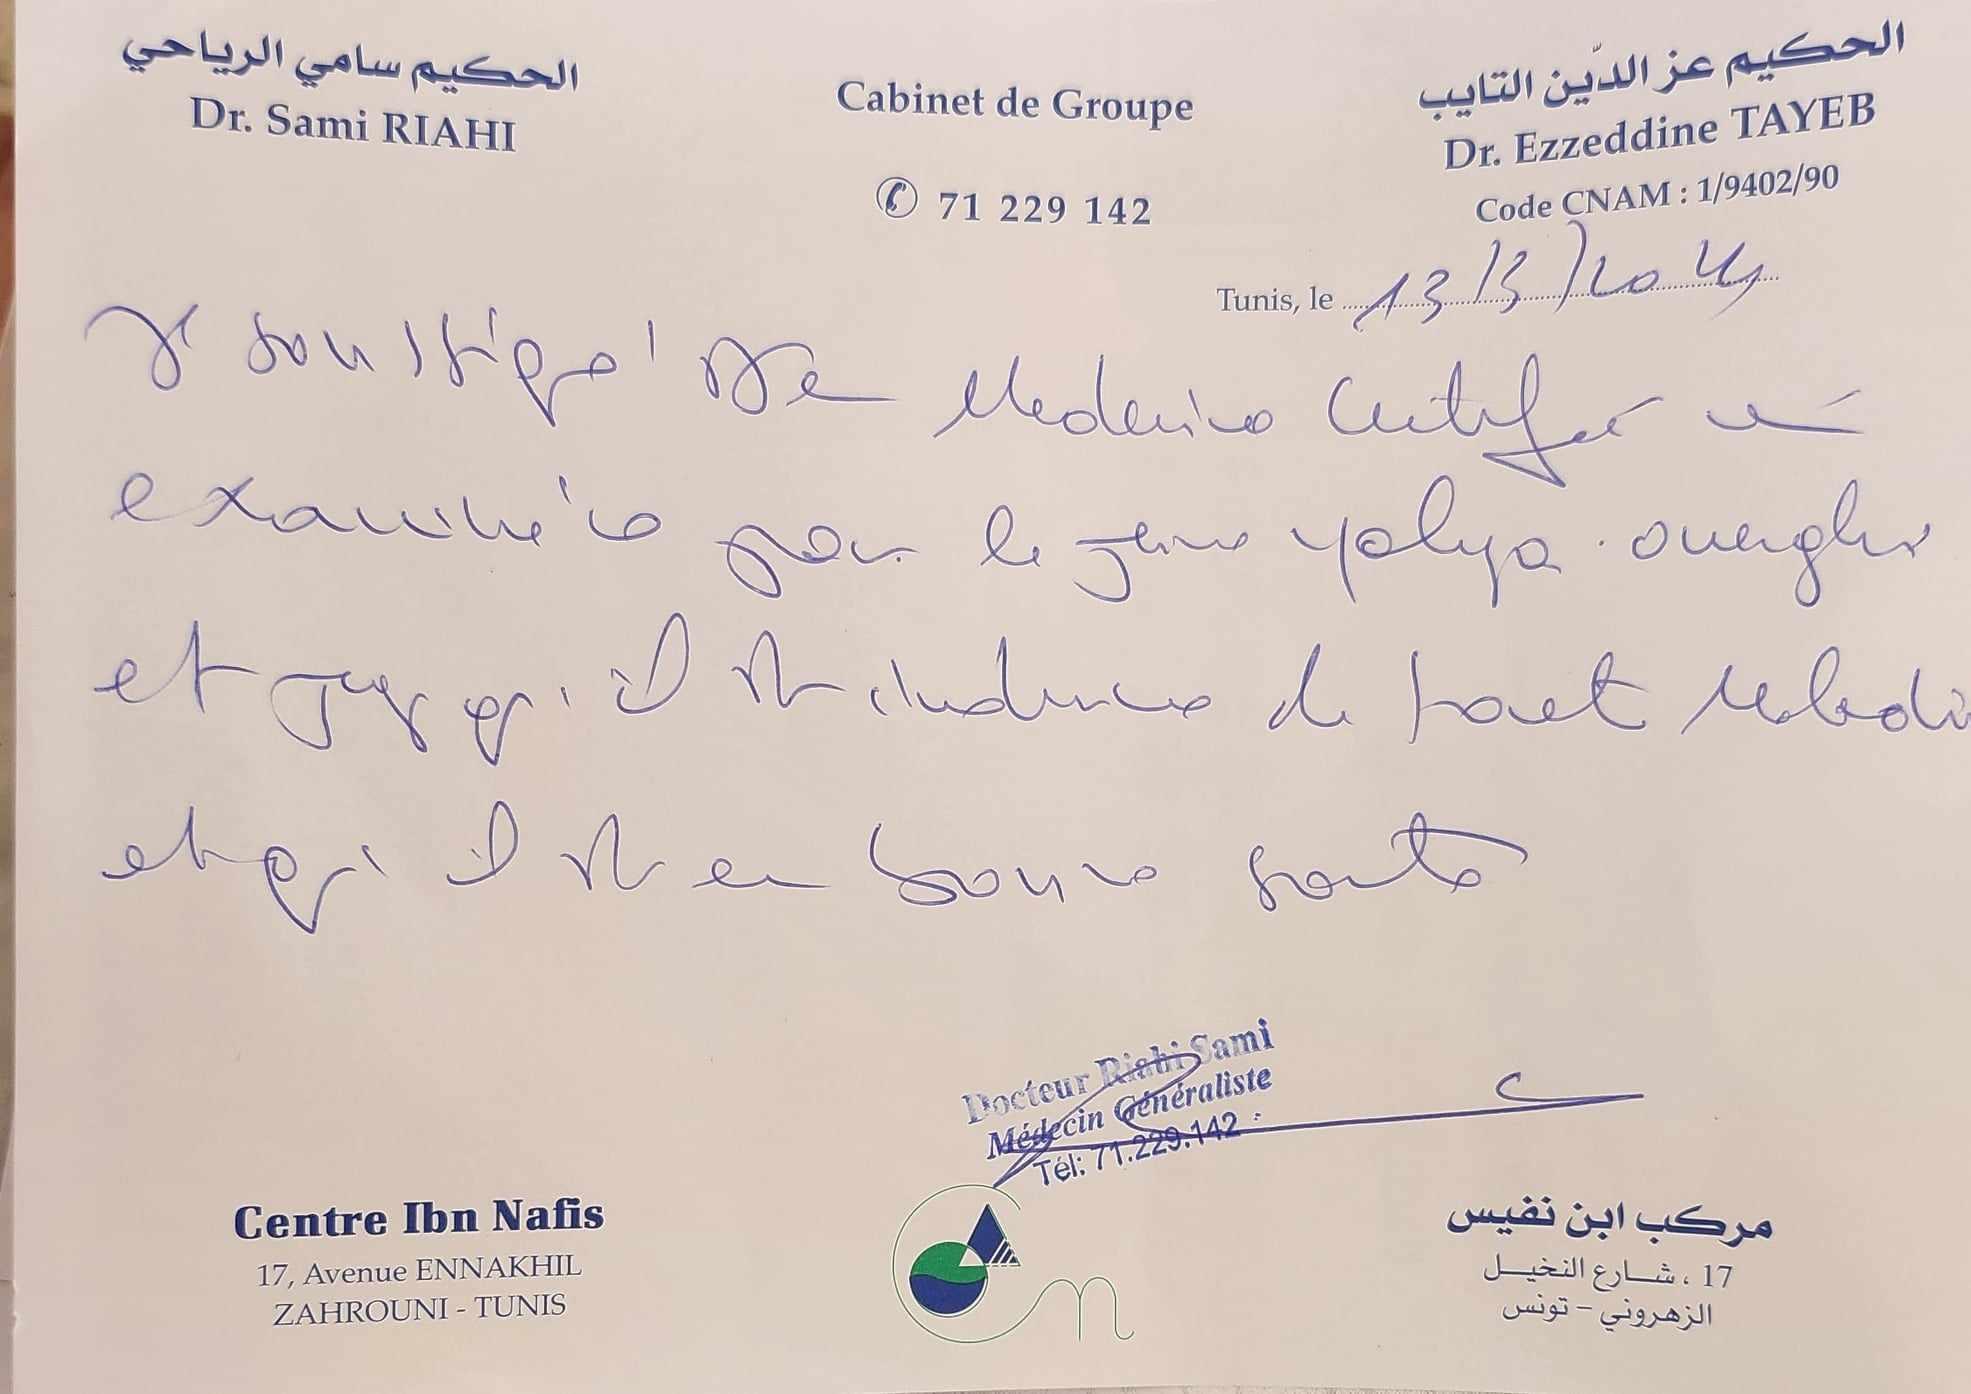 الحكيم سامي الرياحي
Dr. Sami RIAHI
Cabinet de Groupe
71 229 142
الحكيم عز الدّين التايب
Dr. Ezzeddine TAYEB
Code CNAM : 1/9402/90
Tunis, le 13/3/20
Je soussigné Médecine Certifie
examiné ce jour le jeune yahya
et il est indemne de toute maladie
et qu'il est en bonne santé
Docteur Riahi Sami
Médecin Généraliste
Tél: 71.229.142
Centre Ibn Nafis
17, Avenue ENNAKHIL
ZAHROUNI - TUNIS
مركب ابن نفيس
17 ، شارع النخيل
الزهروني - تونس